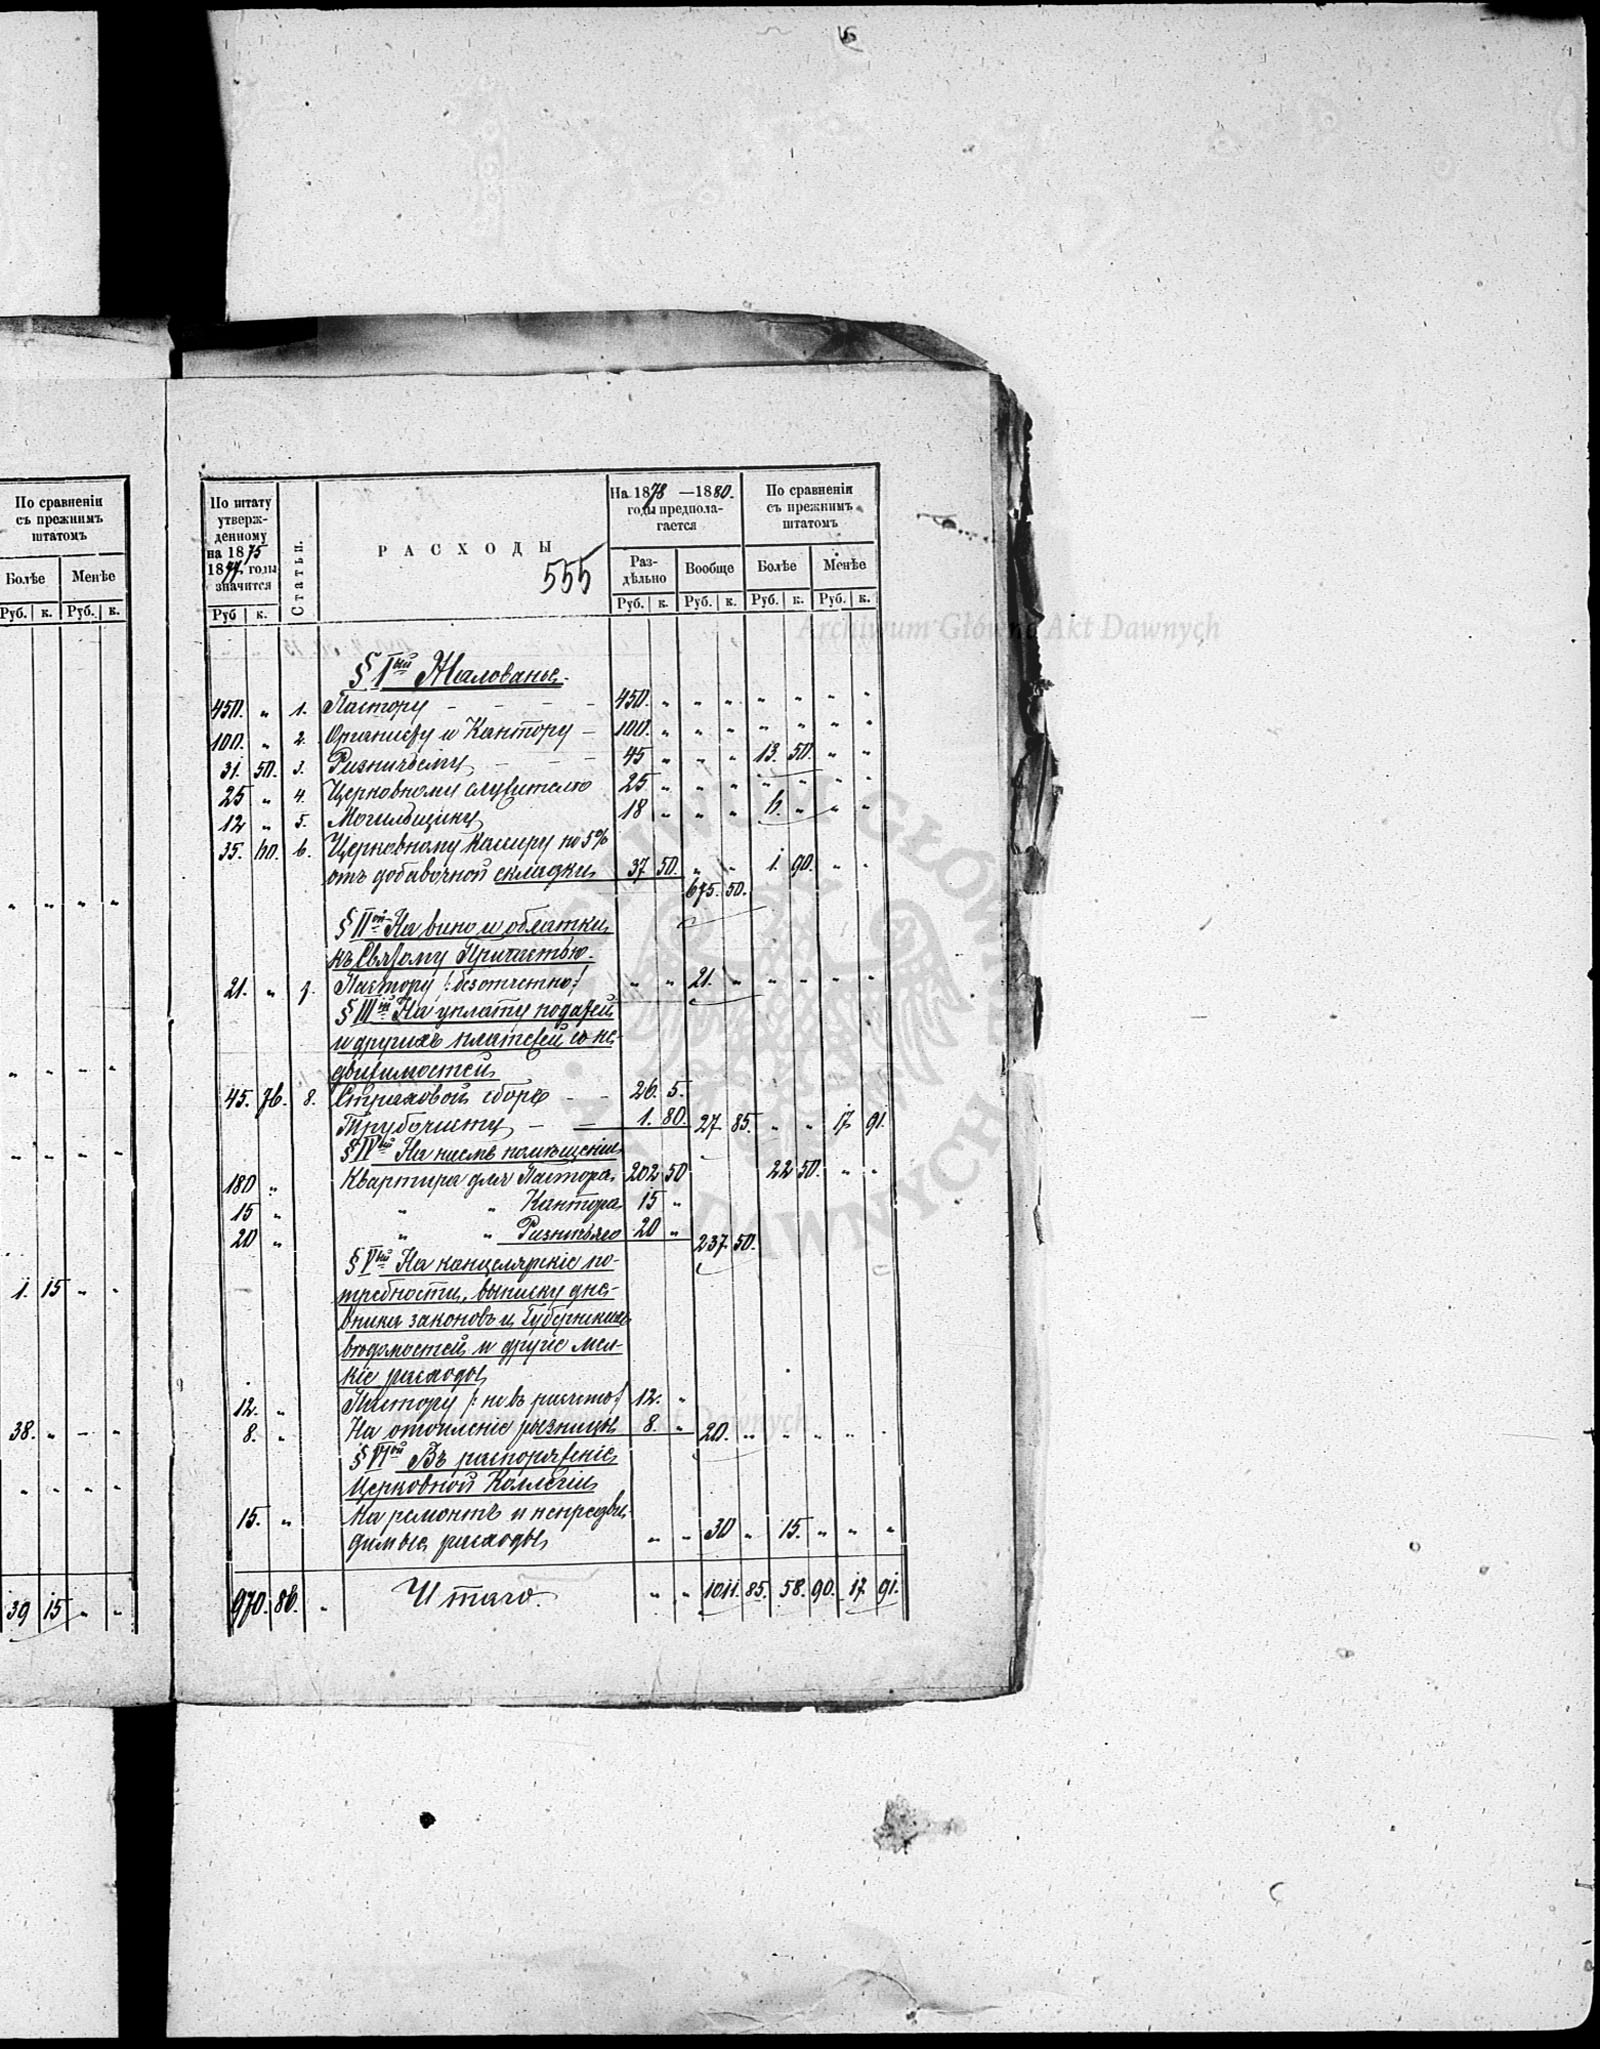 По сравненіи
съ прежнимъ
штатомъ
Болѣе Менѣе
Руб. к. Руб. к.
" " " "
" " " "
" " " "
1. 15 " "
38. " " "
" " " "
39 15 " "
По штату
утверж-
денному
на 1875
1877 годы
значится
Руб к.
Статьи.
РАСХОДЫ
555
На 1878 —1880.
годы предпола-
гается
Раз-
дѣльно
Вообще
Руб. к. Руб. к.
По сравненіи
съ прежнимъ
штатомъ
Болѣе Менѣе
Руб. к. Руб. к.
Archiwum Główne Akt Dawnych
§ Iый Жалованье.
450. " 1. Пастору — — — — 450. " " " " " " "
100. " 2. Органисту и Кантору — 100. " " " " " " "
31. 50. 3. Ризничему — — — 45 " " " 13. 50. " "
25 " 4. Церковному служителю 25 " " " " " " "
12 " 5. Могильщику 18 " " " 6. " " "
35. 60. 6. Церковному Кассиру по 5%
отъ добавочной складки 37 50. " " 1. 90. " "
675. 50.
§ IIой На вино и облатки
къ Святому Причастью.
21. " 7. Пастору /:безотчетно:/ " " 21. " " " " "
§ IIIій На уплату податей
и другихъ платежей съ не-
движимостей
45. 76. 8. Страховой сборъ — — 26. 5.
Трубочисту — — 1. 80. 27 85. " " 17 91.
§ IVый На наемъ помѣщенія
180 " Квартира для Пастора 202 50 22 50. " "
15 " " " Кантора 15 "
20 " " " Ризничаго 20 " 237 50.
§ Vый На канцелярскіе по-
требности, выписку дне-
вника законовъ и Губернскихъ
вѣдомостей и другіе мел-
кіе расходы
12. " Пастору /: не въ расчетъ:/ 12. "
8. " На отопленіе ризницы 8. " 20. " " " " "
§ VIой Въ распоряженіе
Церковной Коллегіи
15. " На ремонтъ и непредви-
димые расходы " " 30 " 15. " " "
970. 86. " Итого. " " 1011. 85. 58. 90. 17 91.
Archiwum Główne Akt Dawnych
ARCHIWUM GŁÓWNE AKT DAWNYCH